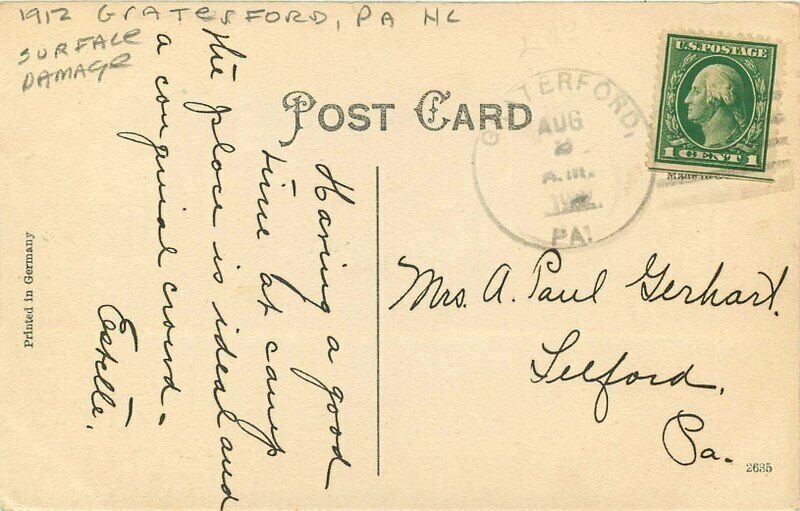 1912 GRATERSFORD, PA HC
SURFACE
DAMAGE
POST CARD
TERFORD,
AUG
A.M.
PA.
U.S. POSTAGE
1 CENT 1
MADE IN
Having a good
time at camp
the place is ideal and
a conguinial crowd.
Estelle.
Mrs. A. Paul Gerhart.
Telford,
Pa.
Printed in Germany
2635